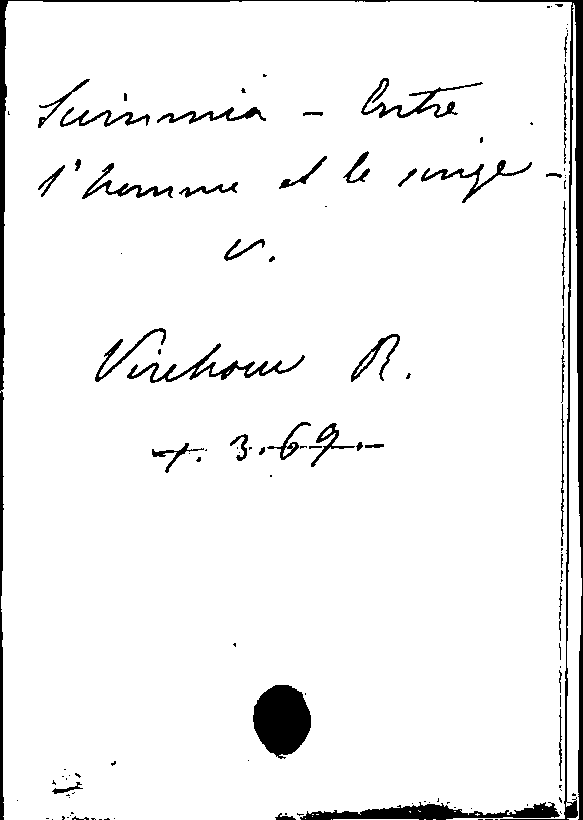 Scimmia - Entre
l'homme et le singe -
v.
Virchow R.
+. 3.69.